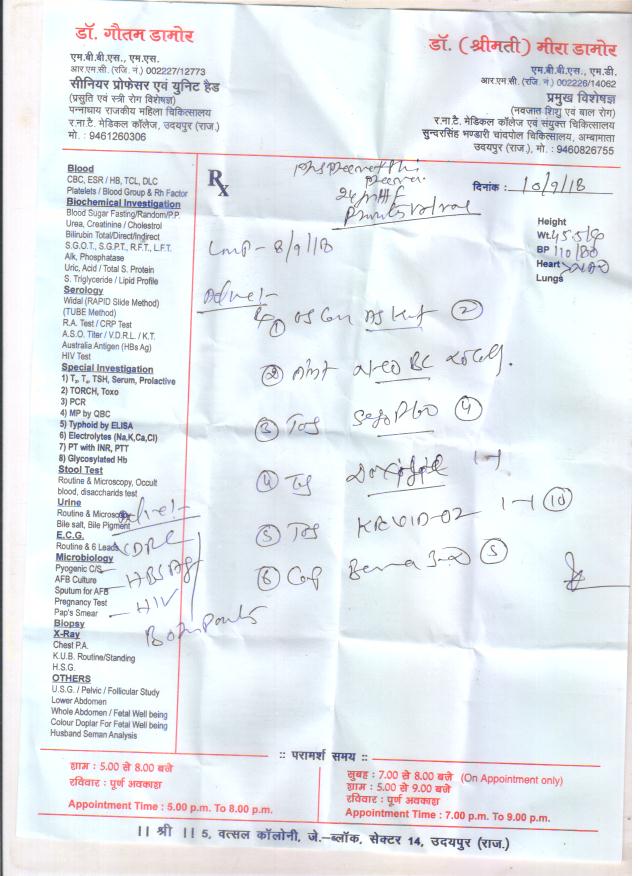 डॉ. गौतम डामोर
एम.बी.बी.एस., एम.एस.
आर.एम.सी. (रजि. नं.) 002227/12773
सीनियर प्रोफेसर एवं युनिट हैड
(प्रसुति एवं स्त्री रोग विशेषज्ञ)
पन्नाधाय राजकीय महिला चिकित्सालय
र.ना.टै. मेडिकल कॉलेज, उदयपुर (राज.)
मो. : 9461260306
डॉ. (श्रीमती) मीरा डामोर
एम.बी.बी.एस., एम.डी.
आर.एम.सी. (रजि. नं.) 002226/14062
प्रमुख विशेषज्ञ
(नवजात शिशु एवं बाल रोग)
र.ना.टै. मेडिकल कॉलेज एवं संयुक्त चिकित्सालय
सुन्दरसिंह भण्डारी चांदपोल चिकित्सालय, अम्बामाता
उदयपुर (राज.), मो. : 9460826755
Blood
CBC, ESR / HB, TCL, DLC
Platelets / Blood Group & Rh Factor
Biochemical Investigation
Blood Sugar Fasting/Random/P.P.
Urea, Creatinine / Cholestrol
Bilirubin Total/Direct/Indirect
S.G.O.T., S.G.P.T., R.F.T., L.F.T.
Alk, Phosphatase
Uric, Acid / Total S. Protein
S. Triglyceride / Lipid Profile
Serology
Widal (RAPID Slide Method)
(TUBE Method)
R.A. Test / CRP Test
A.S.O. Titer / V.D.R.L. / K.T.
Australia Antigen (HBs Ag)
HIV Test
Special Investigation
1) T₃, T₄, TSH, Serum, Prolactive
2) TORCH, Toxo
3) PCR
4) MP by QBC
5) Typhoid by ELISA
6) Electrolytes (Na,K,Ca,Cl)
7) PT with INR, PTT
8) Glycosylated Hb
Stool Test
Routine & Microscopy, Occult
blood, disaccharids test
Urine
Routine & Microscopy
Bile salt, Bile Pigment
E.C.G.
Routine & 6 Leads
Microbiology
Pyogenic C/S
AFB Culture
Sputum for AFB
Pregnancy Test
Pap's Smear
Biopsy
X-Ray
Chest P.A.
K.U.B. Routine/Standing
H.S.G.
OTHERS
U.S.G. / Pelvic / Follicular Study
Lower Abdomen
Whole Abdomen / Fetal Well being
Colour Doplar For Fetal Well being
Husband Seman Analysis
VDRL
HBSAg
HIV
Rx
दिनांक : 10/9/18
Height
Wt. 45.5
BP 110/80
Heart
Lungs
LMP - 8/9/18
Advice :-
①
②
②
③ Tab ④
④ 1-1
⑤ Tab 1-1 ⑩
⑥ Cap ⑤
:: परामर्श समय ::
शाम : 5.00 से 8.00 बजे
रविवार : पूर्ण अवकाश
Appointment Time : 5.00 p.m. To 8.00 p.m.
सुबह : 7.00 से 8.00 बजे (On Appointment only)
शाम : 5.00 से 9.00 बजे
रविवार : पूर्ण अवकाश
Appointment Time : 7.00 p.m. To 9.00 p.m.
|| श्री || 5, वत्सल कॉलोनी, जे.–ब्लॉक, सेक्टर 14, उदयपुर (राज.)